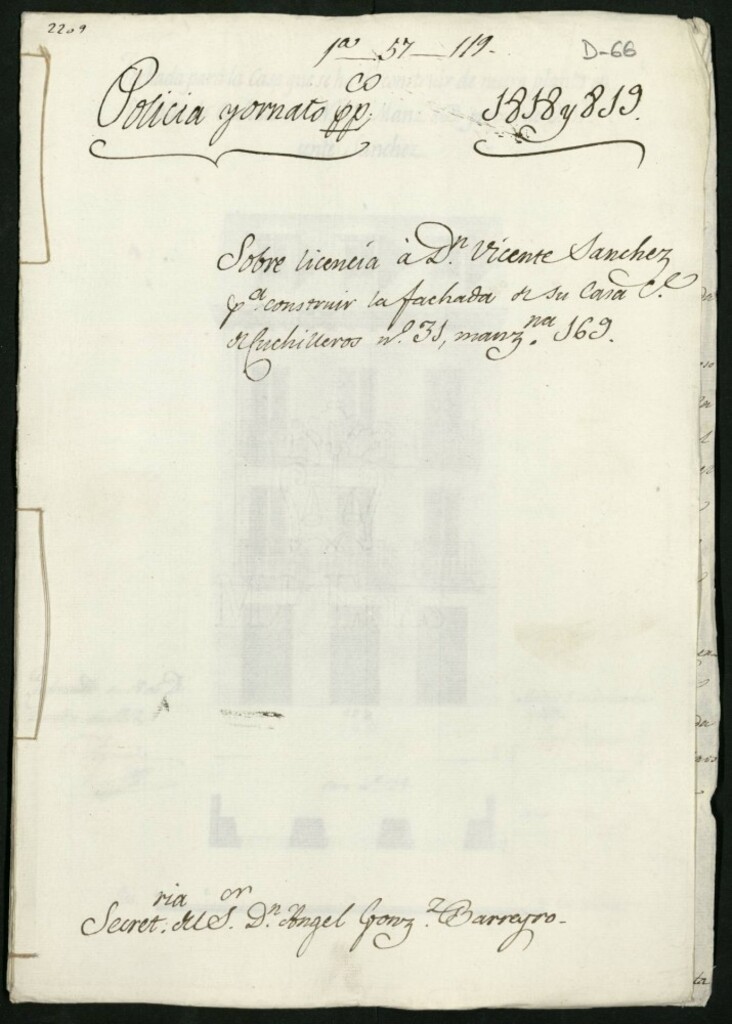 2209
1ª 57-119.
D-66
Policia y ornato pp.co 1818 y 819.
Sobre licencia à Dn. Vicente Sanchez
pª construir la fachada de su Casa C.e
de Cuchilleros nº. 31, manz.na 169.
Secret.ria del S.or Dn. Angel Gonz.z Barreyro-